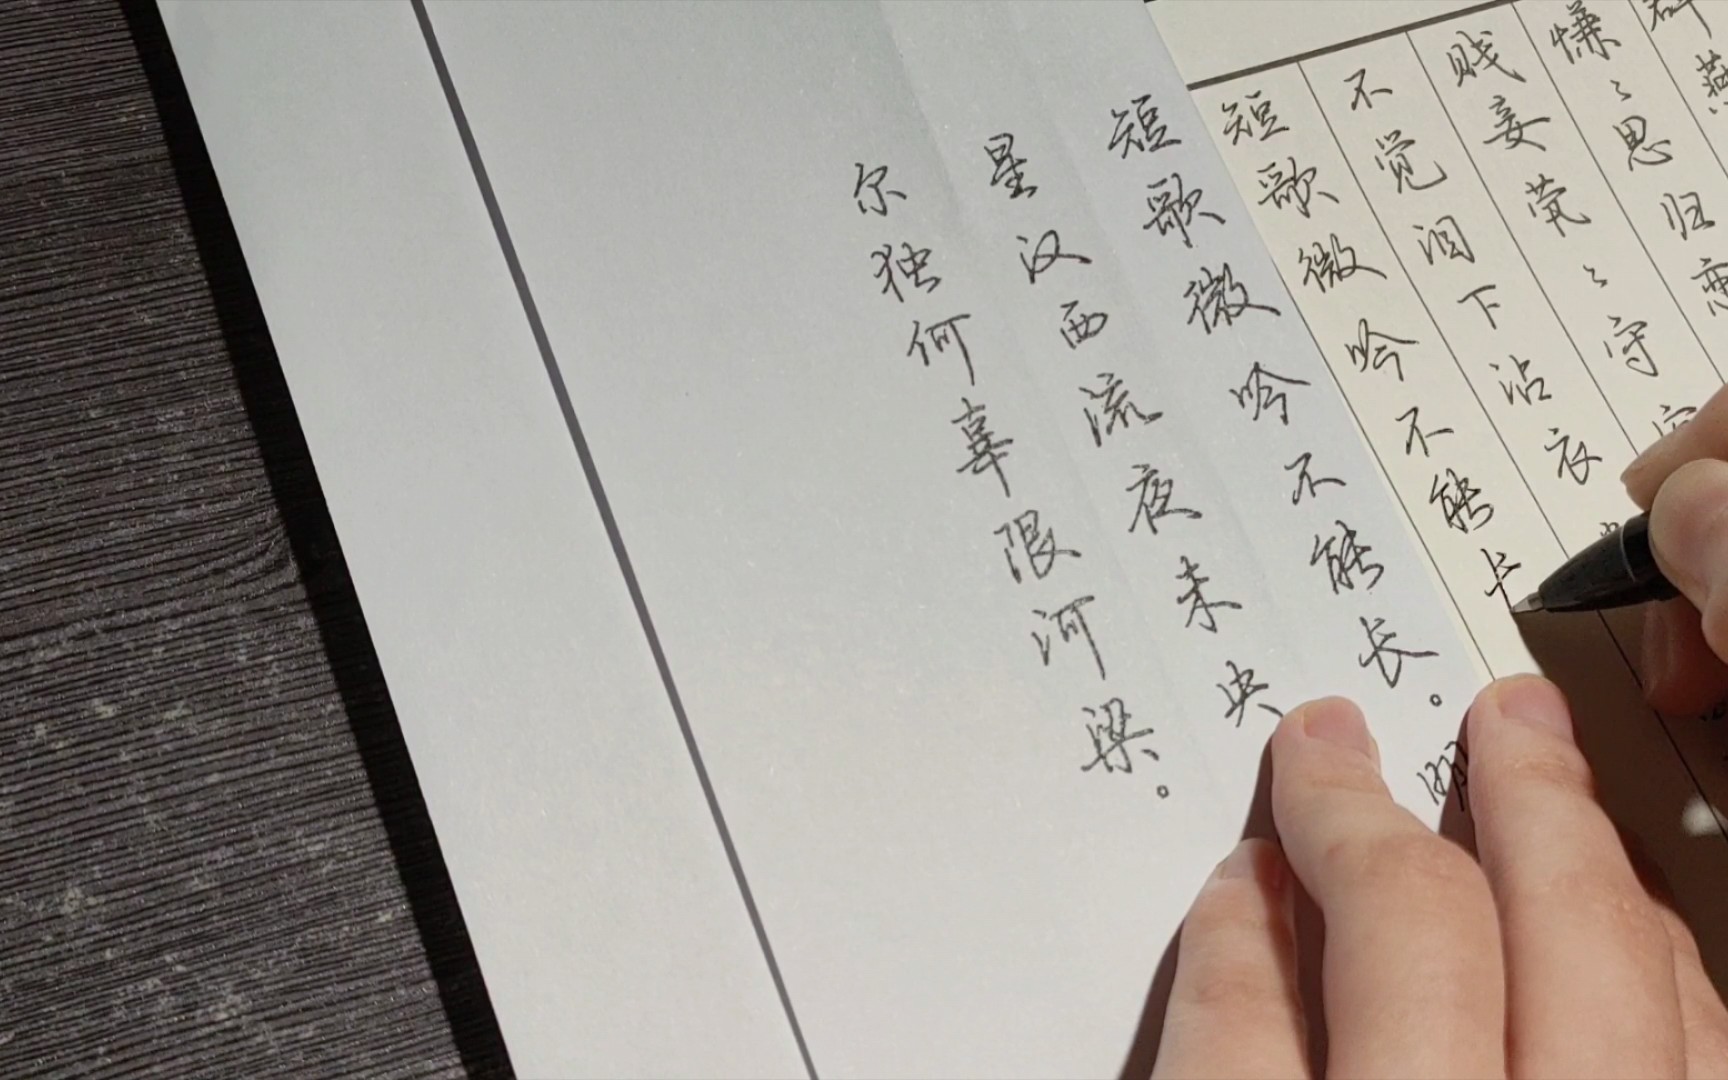 燕
慊〻思归恋
贱妾茕〻守空
不觉泪下沾衣
短歌微吟不能长
短歌微吟不能长。明
星汉西流夜未央
尔独何辜限河梁。